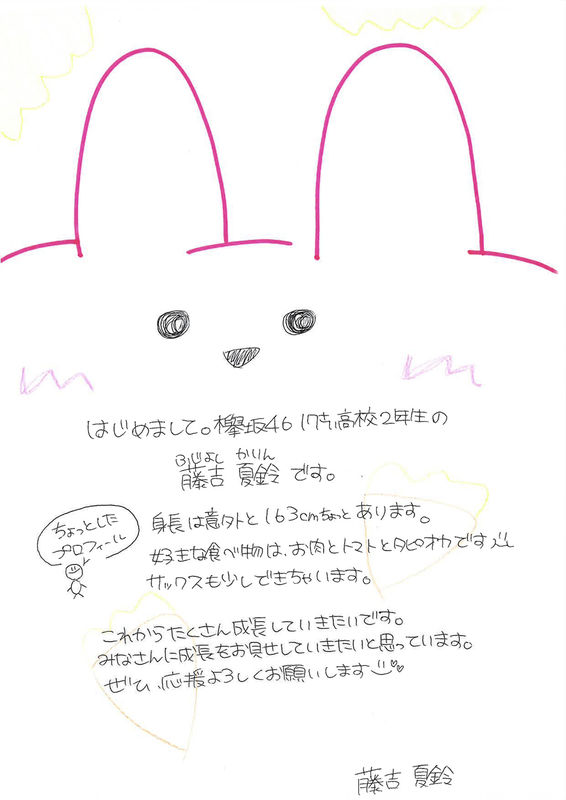 はじめまして。欅坂46 17才、高校2年生の
ふじよし かりん
藤吉 夏鈴 です。
ちょっとした
プロフィール
身長は意外と163cmちょっとあります。
好きな食べ物は、お肉とトマトとタピオカです
サックスも少しできちゃいます。
これからたくさん成長していきたいです。
みなさんに成長をお見せしていきたいと思っています。
ぜひ、応援よろしくお願いします
藤吉 夏鈴